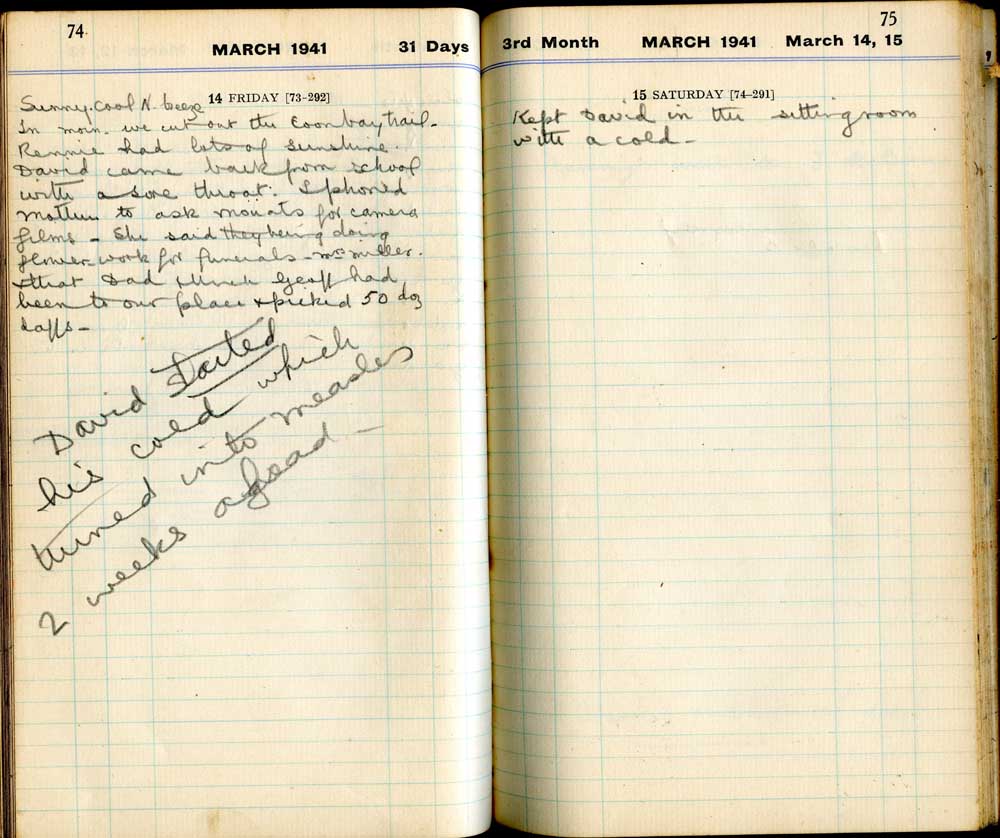 74
MARCH 1941 31 Days
14 FRIDAY [73-292]
Sunny. cool N. breeze
In morn. we cut out the Coon bay trail.
Rennie had lots of sunshine.
David came back from school
with a sore throat. I phoned
mother to ask Mouats for camera
films - She said they being doing
flower-work for funerals - Mrs Miller.
& that Dad & Uncle Geoff had
been to our place & picked 50 doz
daffs -
David started
his cold which
turned into measles
2 weeks ahead -
75
3rd Month MARCH 1941 March 14, 15
15 SATURDAY [74-291]
Kept David in the sitting room
with a cold -